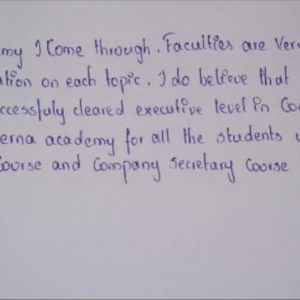 my I Come through. Faculties are Ver
ation on each topic. I do believe that
ccessfuly cleared executive level in Co
erna academy for all the students
Course and Company Secretary Course